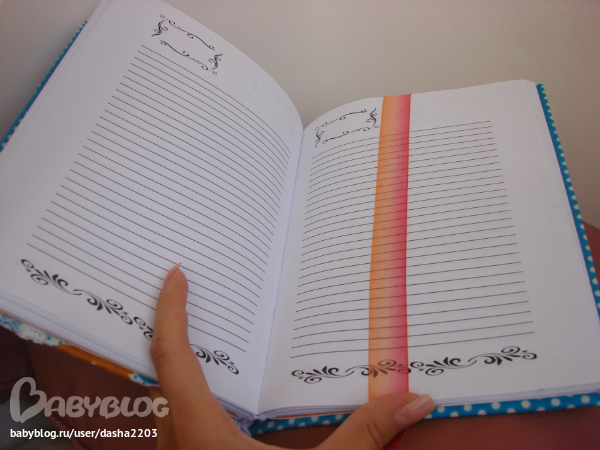 BABYBLOG
babyblog.ru/user/dasha2203